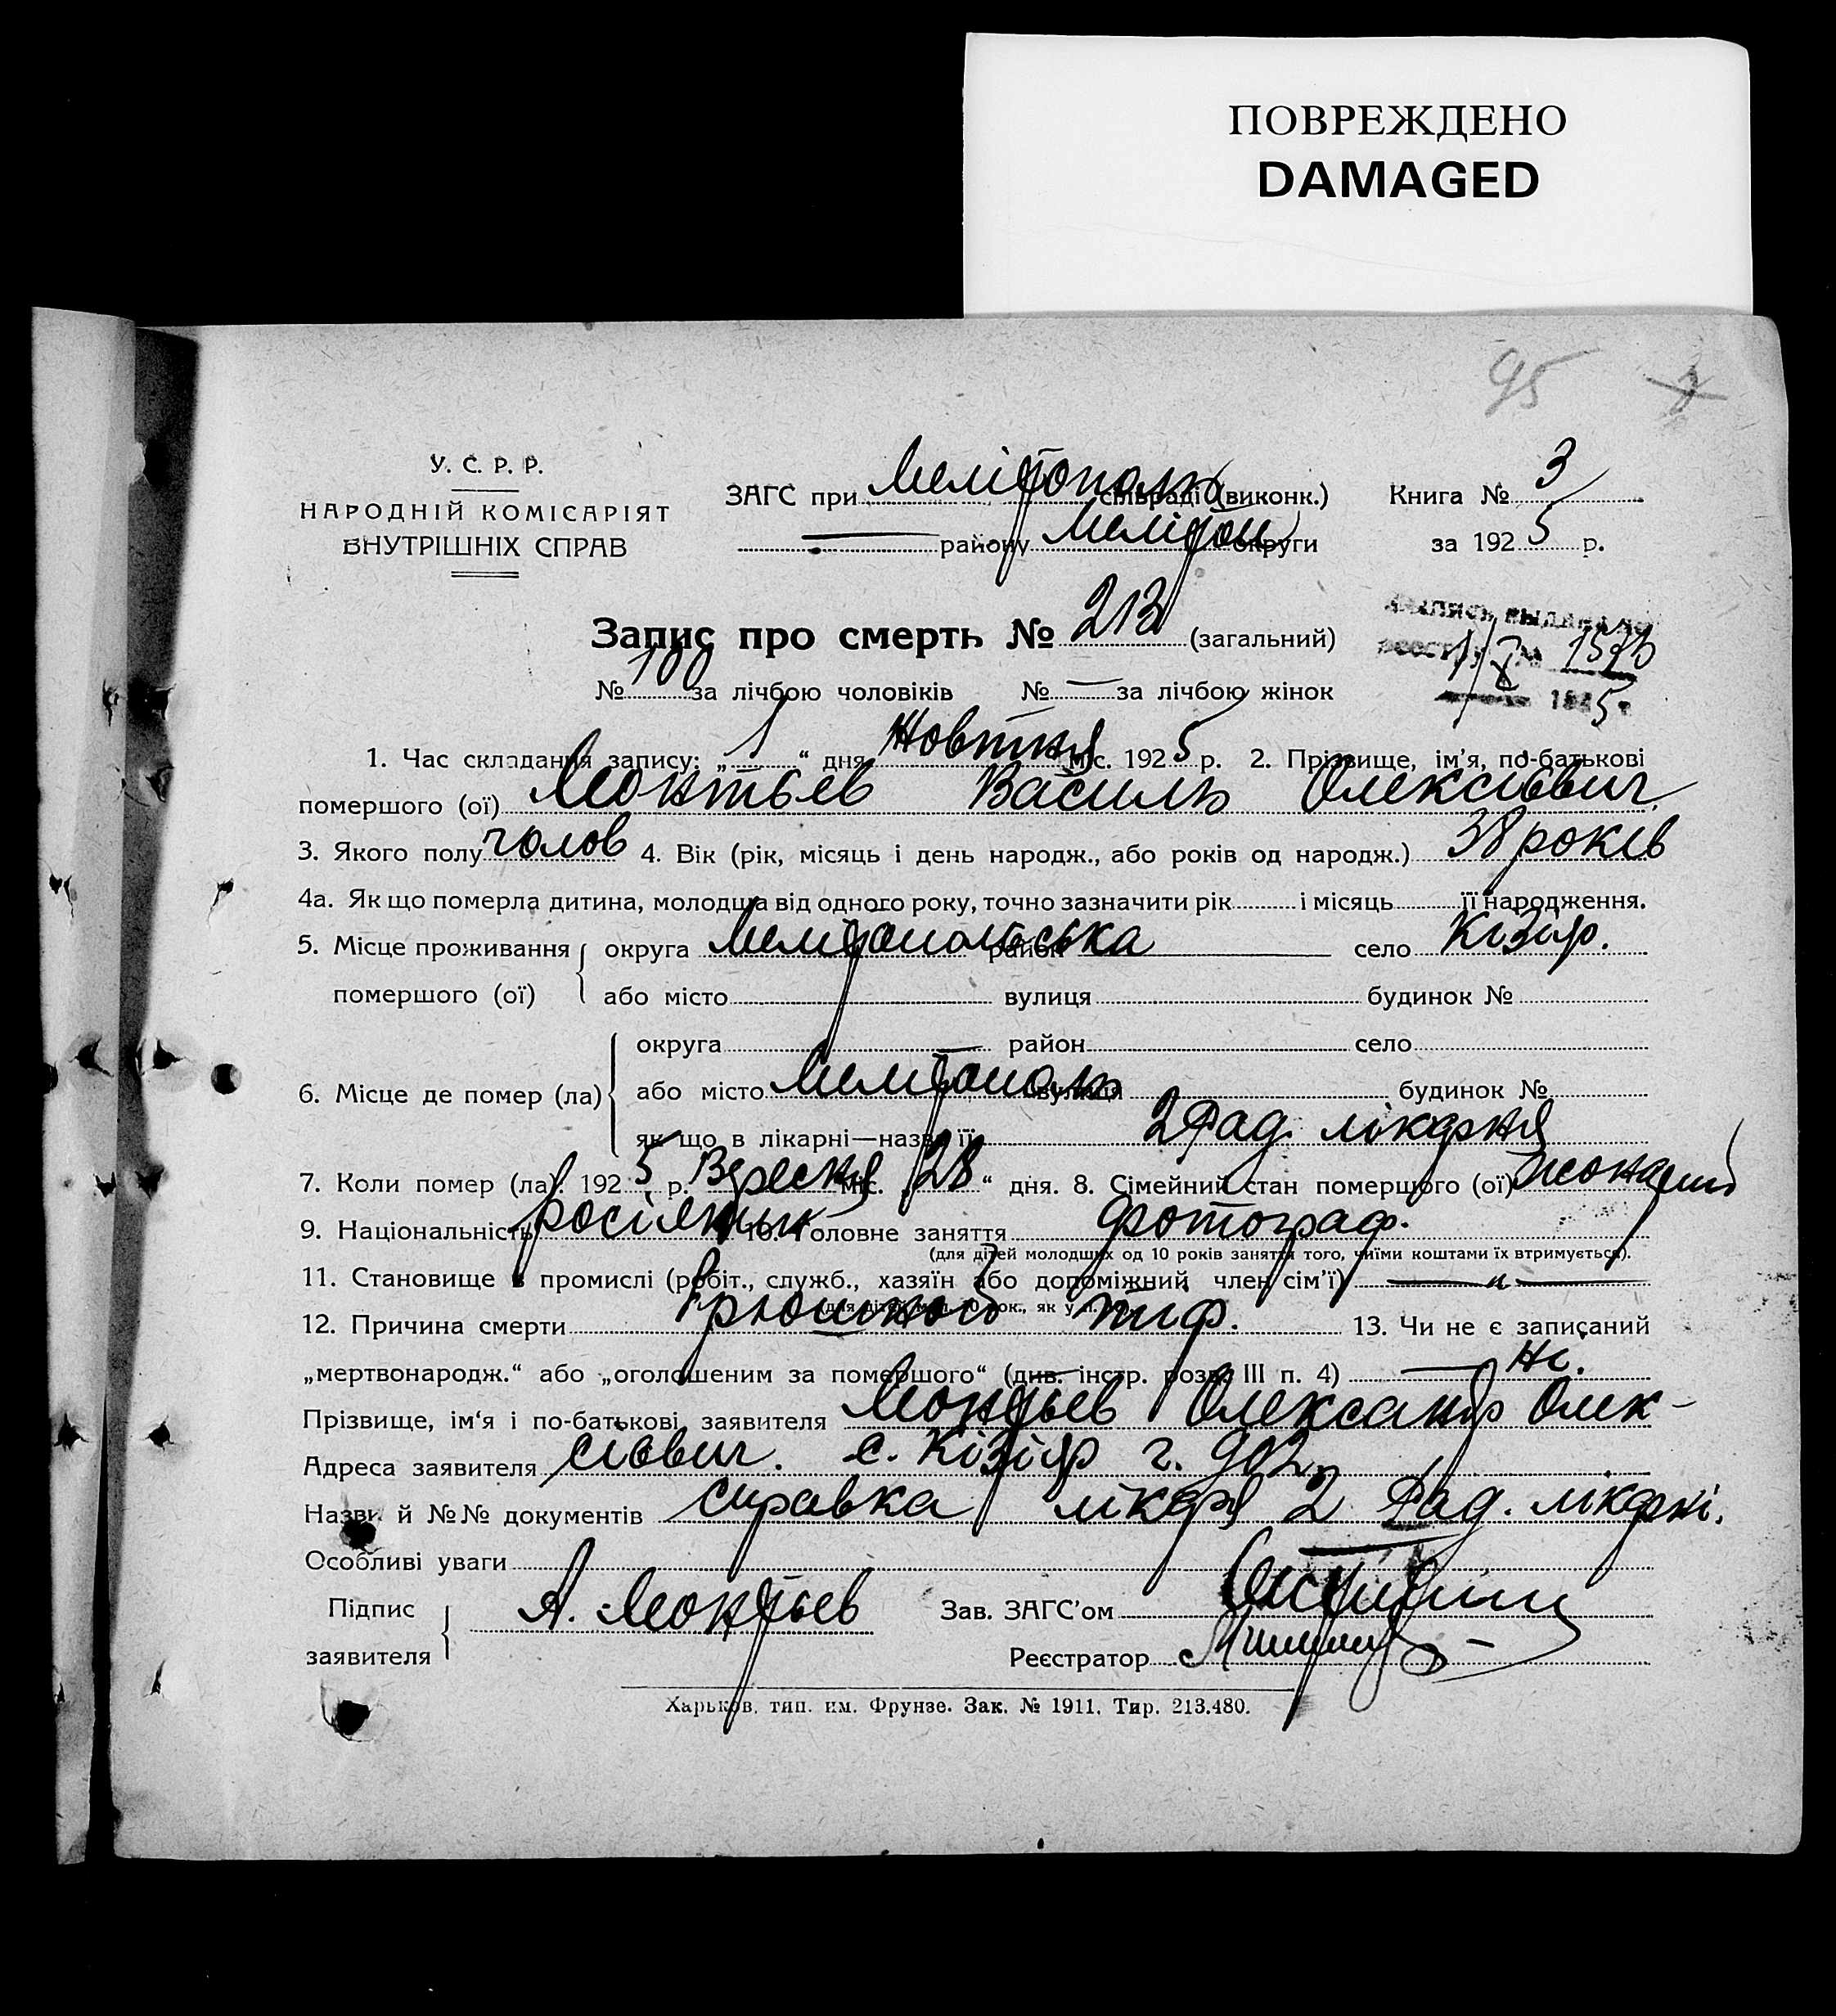 ПОВРЕЖДЕНО
DAMAGED
95
У. С. Р. Р.
НАРОДНІЙ КОМІСАРІЯТ
ВНУТРІШНІХ СПРАВ
ЗАГС при Мелітополь сільраді (виконк.) Книга № 3
— району Мелітоп округи за 1925 р.
Запис про смерть № 213 (загальний)
№ 100 за лічбою чоловіків № — за лічбою жінок
1/X 1925
1. Час складання запису: „1“ дня Жовтня міс. 1925 р. 2. Прізвище, ім'я, по-батькові
помершого (ої) Леонтьев Василь Олексієвич
3. Якого полу чолов 4. Вік (рік, місяць і день народж., або років од народж.) 38 років
4а. Як що померла дитина, молодша від одного року, точно зазначити рік і місяць її народження.
5. Місце проживання помершого (ої) округа Мелітопольська район — село Кізіяр.
або місто вулиця будинок №
6. Місце де помер (ла) округа — район село
або місто Мелітополь вулиця будинок №
як що в лікарні—назва її 2 Рад. лікарня
7. Коли помер (ла). 1925 р. Вересня міс. „28“ дня. 8. Сімейний стан помершого (ої) жонатий
9. Національність росіянин 10. Головне заняття фотограф.
(для дітей молодших од 10 років заняття того, чиїми коштами їх втримується).
11. Становище в промислі (робіт., служб., хазяїн або допоміжний член сім'ї) — „ —
(для дітей мол. 10 рок., як у п.
12. Причина смерти Брюшной тіф. 13. Чи не є записаний
„мертвонародж.“ або „оголошеним за помершого“ (див. інстр. розд. III п. 4) — Ні.
Прізвище, ім'я і по-батькові заявителя Леонтьев Олександр Олек-
Адреса заявителя сієвич. с. Кізіяр г. 902
Назви й №№ документів справка лікаря 2 Рад. лікарні.
Особливі уваги
Підпис заявителя А. Леонтьев Зав. ЗАГС'ом
Реєстратор
Харьков, тип. им. Фрунзе. Зак. № 1911. Тир. 213.480.